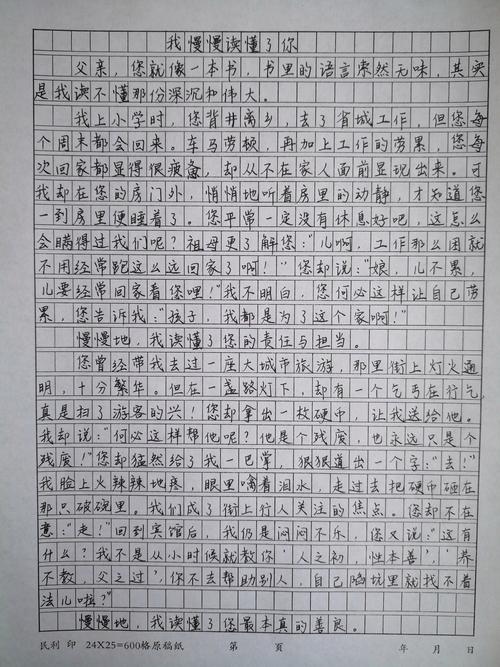 我慢慢读懂了你
父亲，您就像一本书，书里的语言索然无味，其实
是我读不懂那份深沉和伟大。
我上小学时，您背井离乡，去了省城工作，但您每
个周末都会回来。车马劳顿，再加上工作的劳累，您每
次回家都显得很疲惫，却从不在家人面前显现出来。可
我却在您的房门外，悄悄地听着房里的动静，才知道您
一到房里便睡着了。您平常一定没有休息好吧，这怎么
会瞒得过我们呢？祖母更了解您：“儿啊，工作那么困就
不用经常跑这么远回家了啊！”您却说：“娘，儿不累，
儿要经常回家看您哩！”我不明白，您何必这样让自己劳
累，您告诉我：“孩子，我都是为了这个家啊！”
慢慢地，我读懂了您的责任与担当。
您曾经带我去过一座大城市旅游，那里街上灯火通
明，十分繁华。但在一盏路灯下，却有一个乞丐在行乞，
真是扫了游客的兴！您却拿出一枚硬币，让我送给他。
我却说：“何必这样帮他呢？他是个残废，也永远只是个
残废！”您却猛然给了我一巴掌，狠狠道出一个字：“去！”
我脸上火辣辣地疼，眼里噙着泪水，走过去把硬币砸在
那只破碗里。我们成了街上行人关注的焦点。您却不在
意：“走！”回到宾馆后，我仍是闷闷不乐，您又说：“这有
什么？我不是从小时候就教你‘人之初，性本善’，‘养
不教，父之过’，你不去帮助别人，自己陷坑里就找不着
法儿啦？”
慢慢地，我读懂了您最本真的善良。
民利 印 24X25=600格原稿纸 第 页 年 月 日